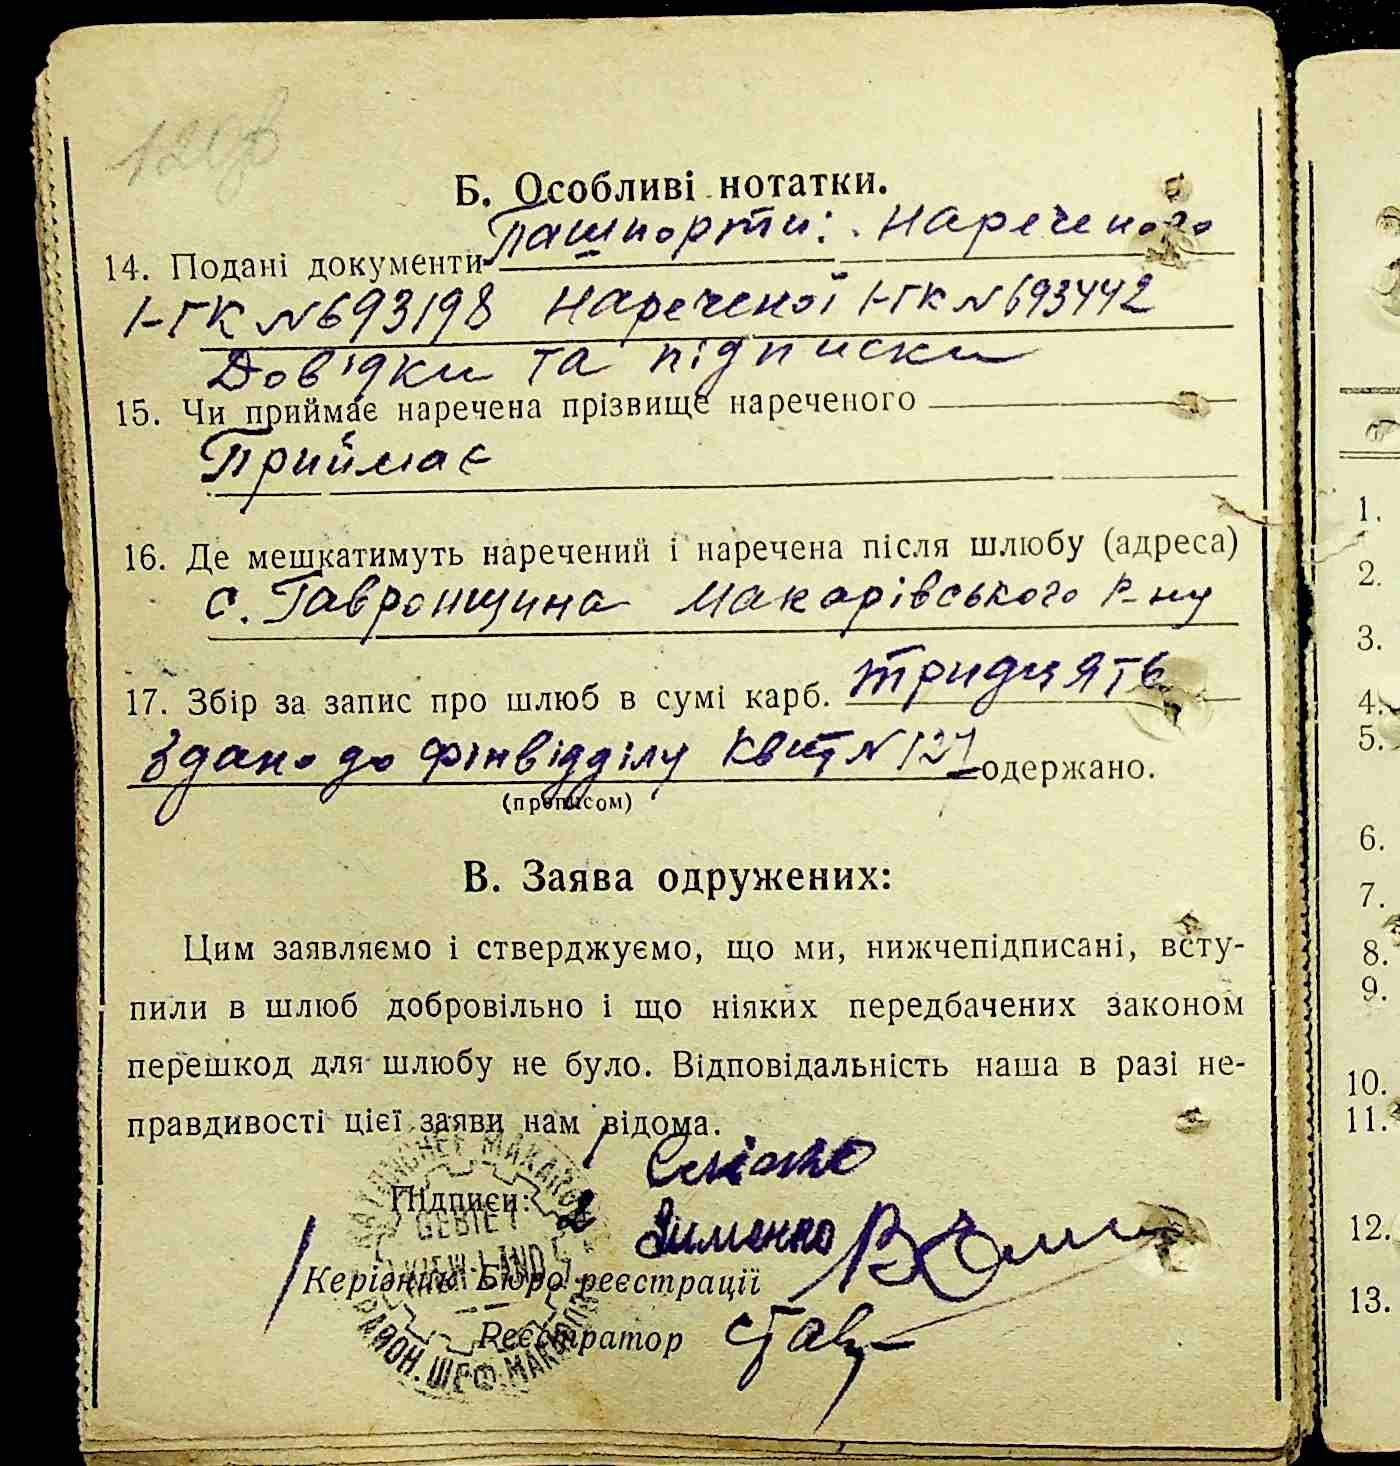 Б. Особливі нотатки.
14. Подані документи Пашпорти: Нареченого
1-ГК №693198 Нареченої 1-ГК №693442
Довідки та підписки
15. Чи приймає наречена прізвище нареченого
Приймає
16. Де мешкатимуть наречений і наречена після шлюбу (адреса)
с. Гавронщина Макарівського р-ну
17. Збір за запис про шлюб в сумі карб. тридцять
Здано до фінвідділу квит № 127 одержано.
(прописом)
В. Заява одружених:
Цим заявляємо і стверджуємо, що ми, нижчепідписані, всту-
пили в шлюб добровільно і що ніяких передбачених законом
перешкод для шлюбу не було. Відповідальність наша в разі не-
правдивості цієї заяви нам відома.
Підписи:
2 Зименко
Керівник Бюро реєстрації
Реєстратор
GEBIET
KIEW-LAND
РАЙОН. ШЕФ. МАКАРІВ
1.
2.
3.
4.
5.
6.
7.
8.
9.
10.
11.
12.
13.